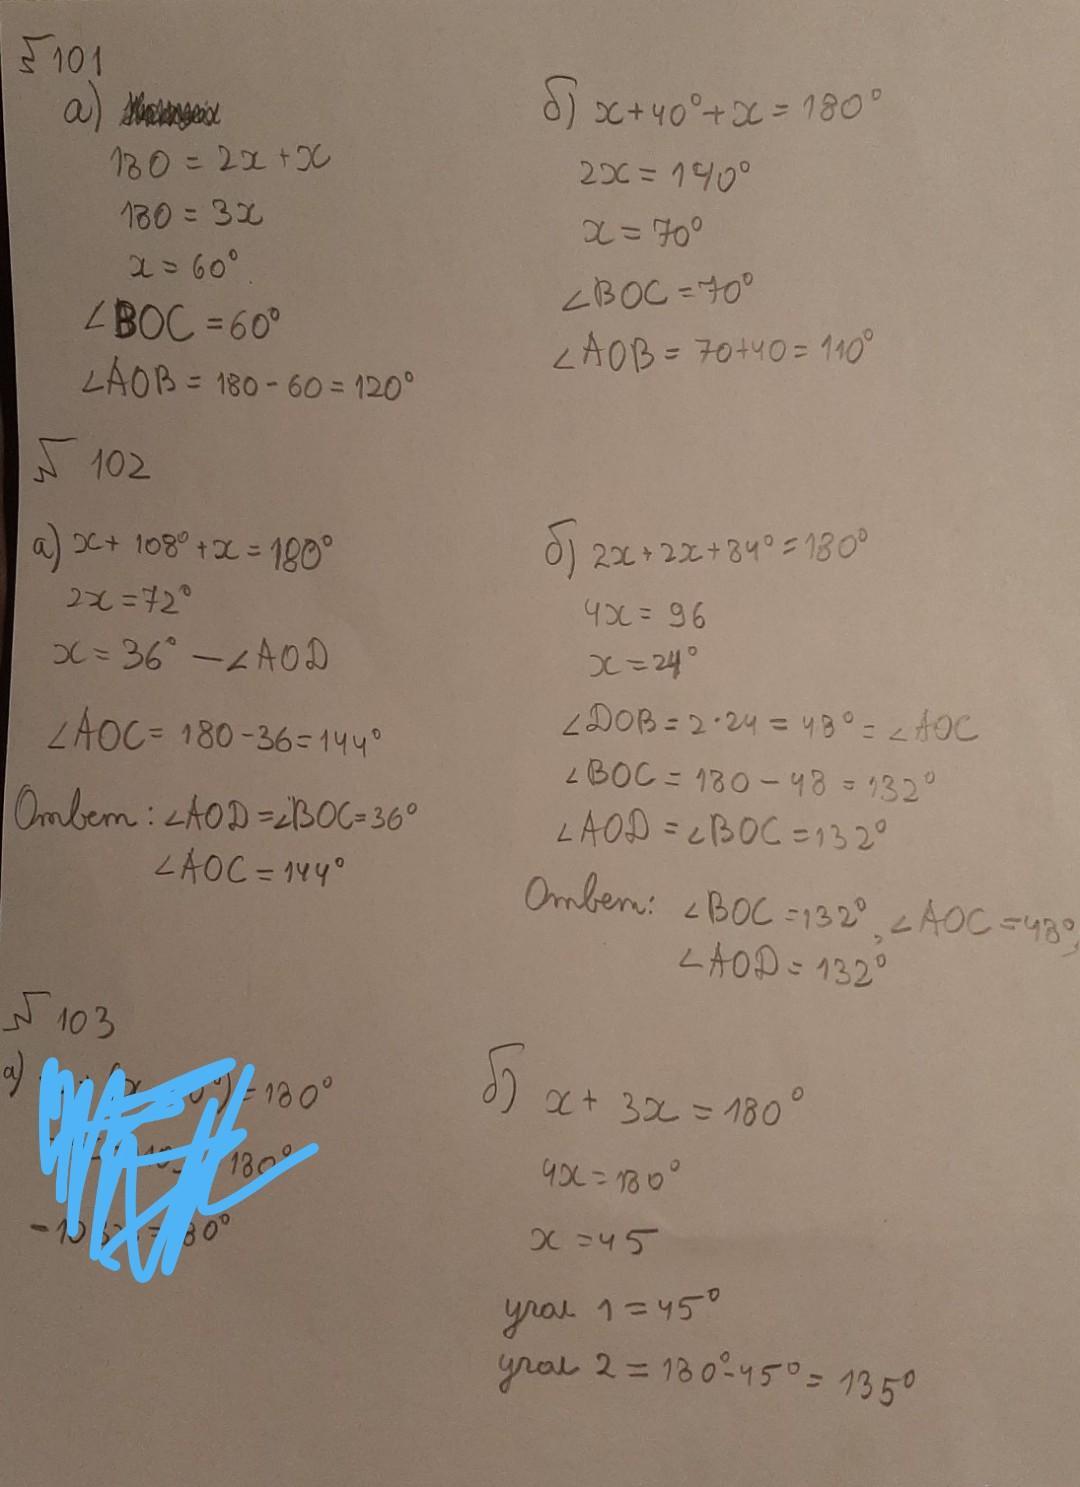 № 101
а)
180 = 2x + x
180 = 3x
x = 60°
∠BOC = 60°
∠AOB = 180 - 60 = 120°
б) x + 40° + x = 180°
2x = 140°
x = 70°
∠BOC = 70°
∠AOB = 70 + 40 = 110°
№ 102
а) x + 108° + x = 180°
2x = 72°
x = 36° — ∠AOD
∠AOC = 180 - 36 = 144°
Ответ: ∠AOD = ∠BOC = 36°
∠AOC = 144°
б) 2x + 2x + 84° = 180°
4x = 96
x = 24°
∠DOB = 2 · 24 = 48° = ∠AOC
∠BOC = 180 - 48 = 132°
∠AOD = ∠BOC = 132°
Ответ: ∠BOC = 132°, ∠AOC = 48°,
∠AOD = 132°
№ 103
а) = 180°
180°
б) x + 3x = 180°
4x = 180°
x = 45
угол 1 = 45°
угол 2 = 180° - 45° = 135°